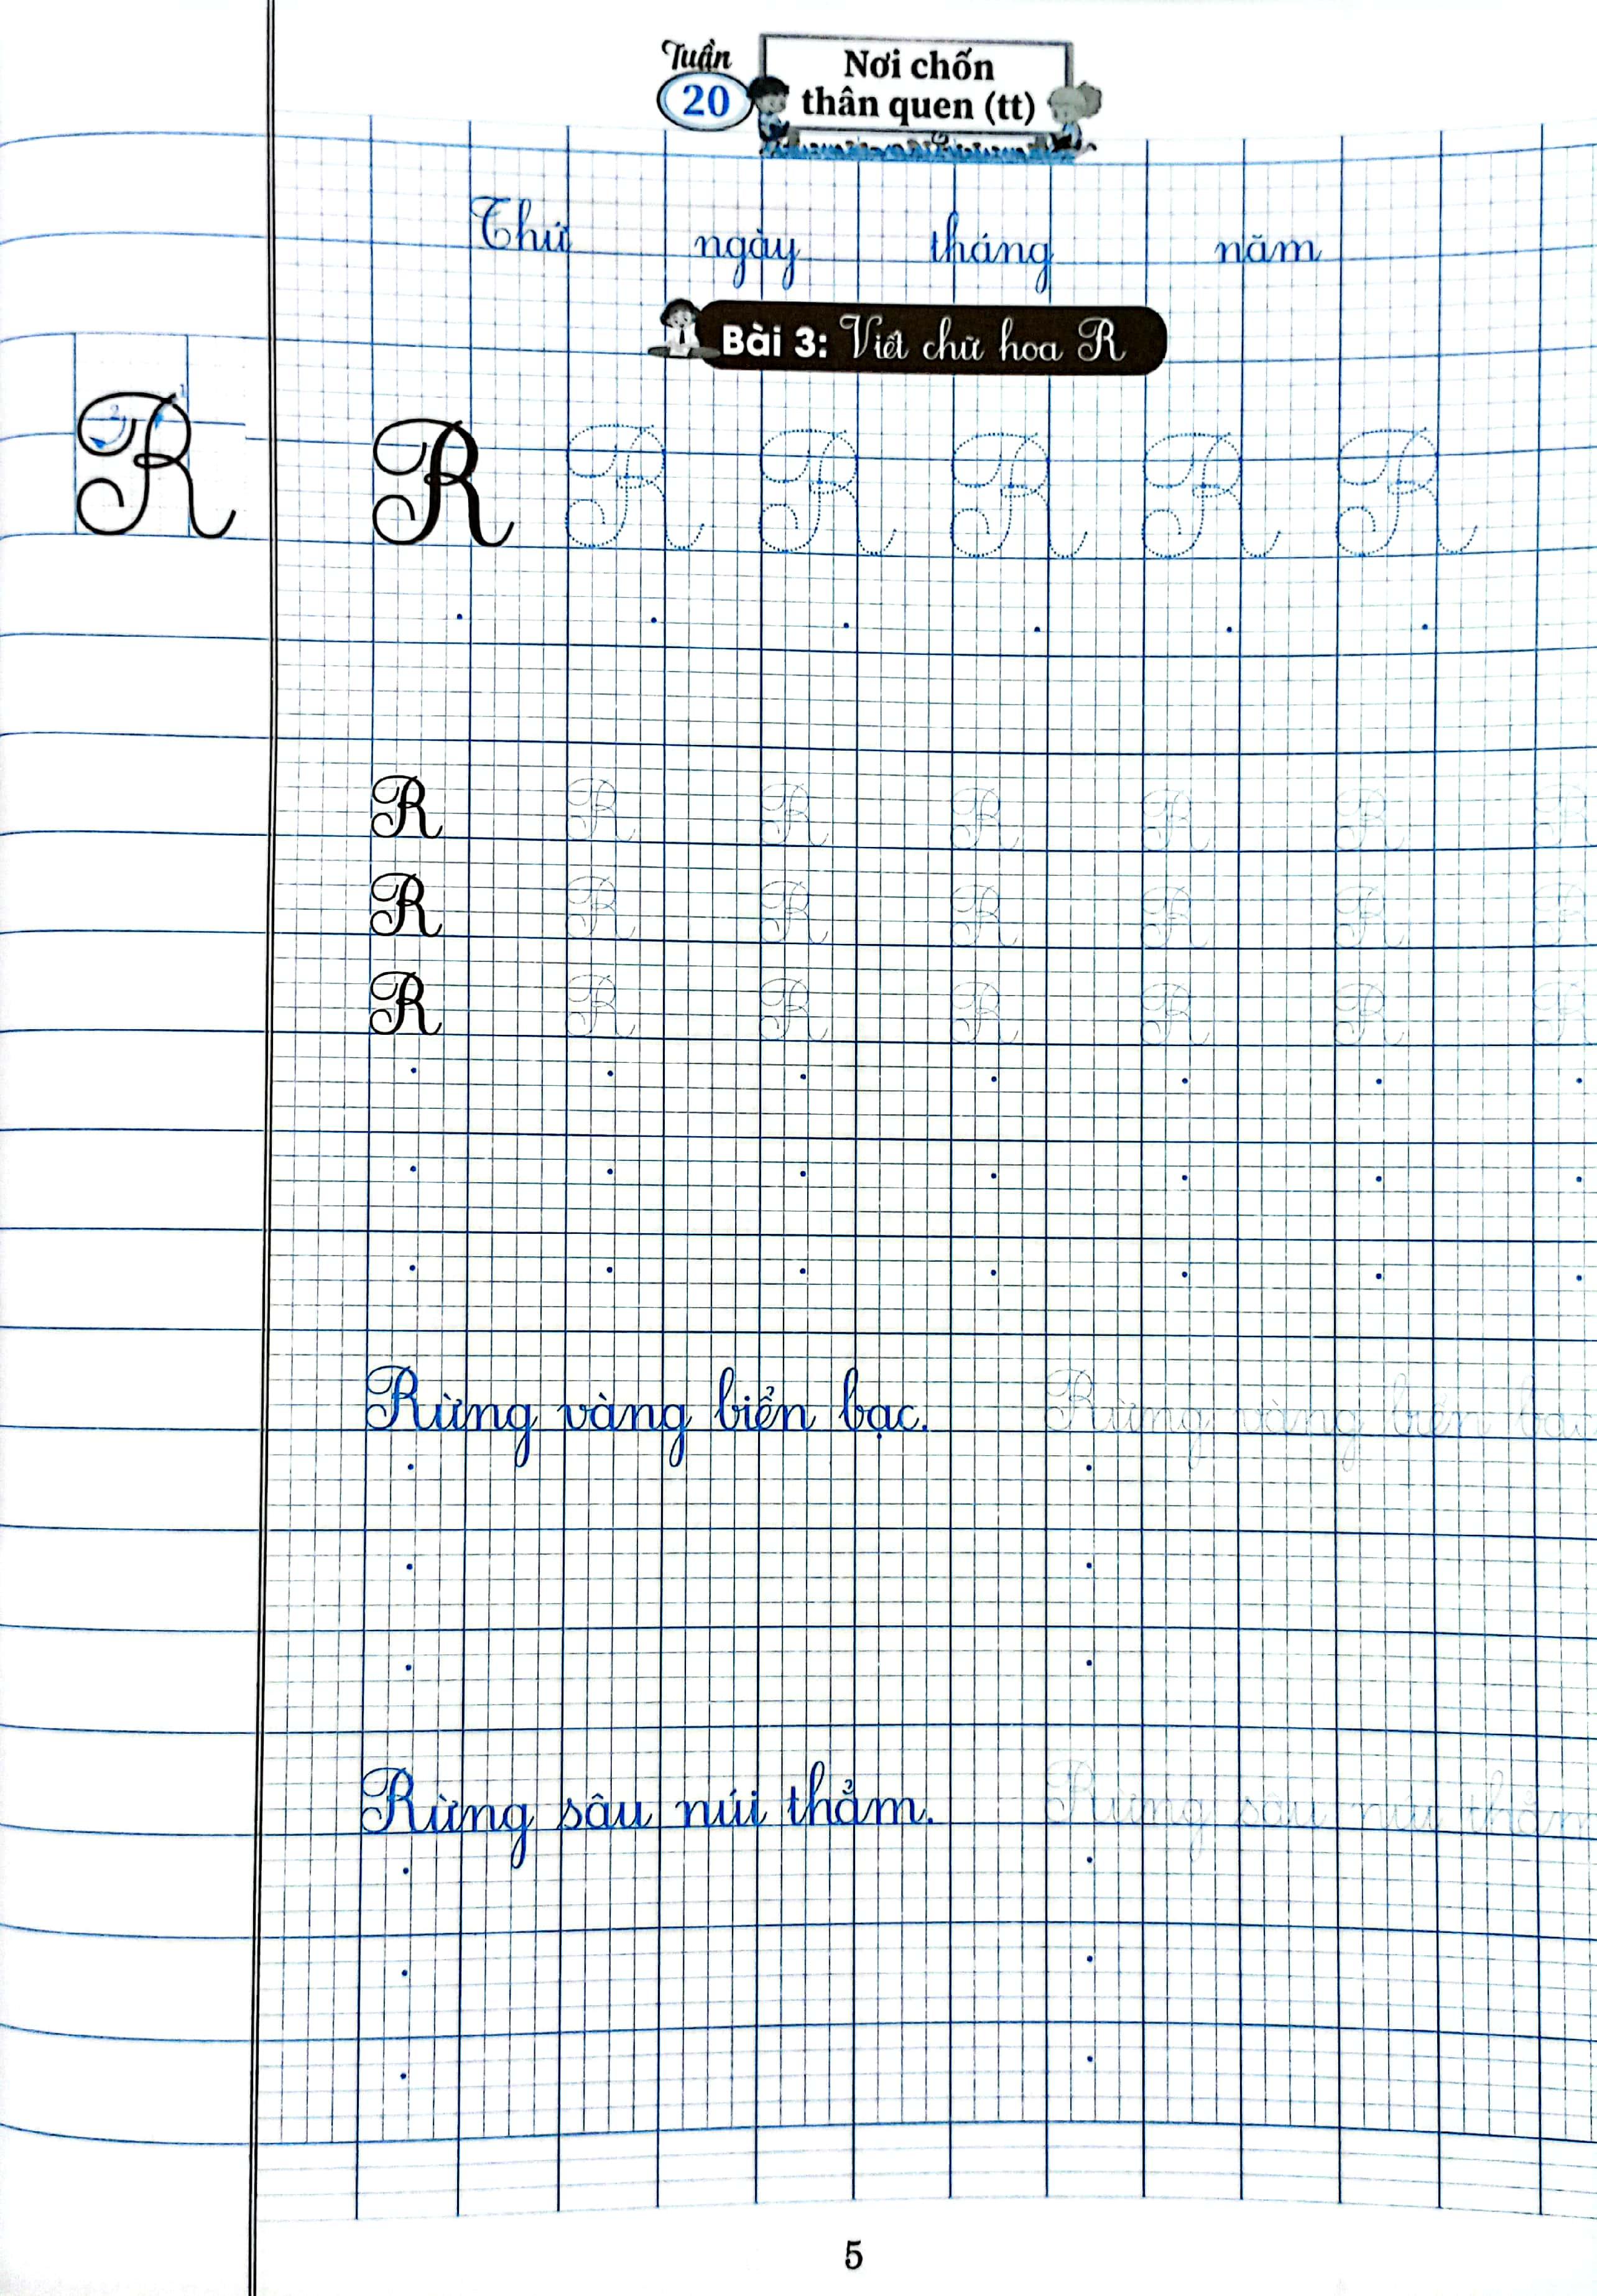 Tuần 20
Nơi chốn
thân quen (tt)
Thứ ngày tháng năm
Bài 3: Viết chữ hoa R
R R R R R R R
R R R R R R R
R R R R R R R
R R R R R R R
Rừng vàng biển bạc. Rừng vàng biển bạc
Rừng sâu núi thẳm. Rừng sâu núi thẳm
5